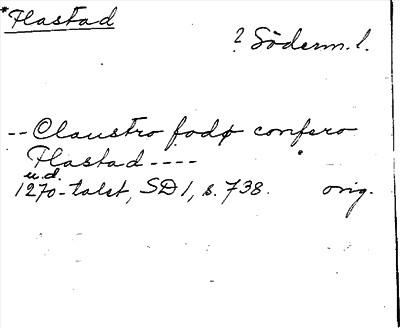 *Flastad
? Söderm. l.
-- Claustro fodø confero
Flastad ----
u.d.
1270-talet, SD 1, s. 738. orig.